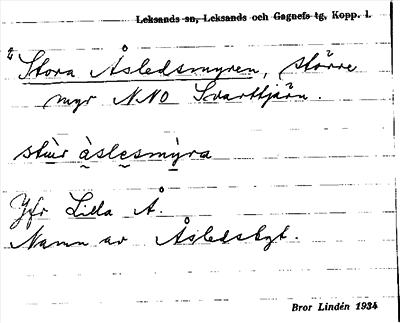 Leksands sn, Leksands och Gagnefs tg, Kopp. l.
Stora Åsledsmyren, större
myr NNO Svarttjärn.
stùr àslesmỳra
Jfr Lilla Å.
Namn av Åsledsbyt.
Bror Lindén 1934